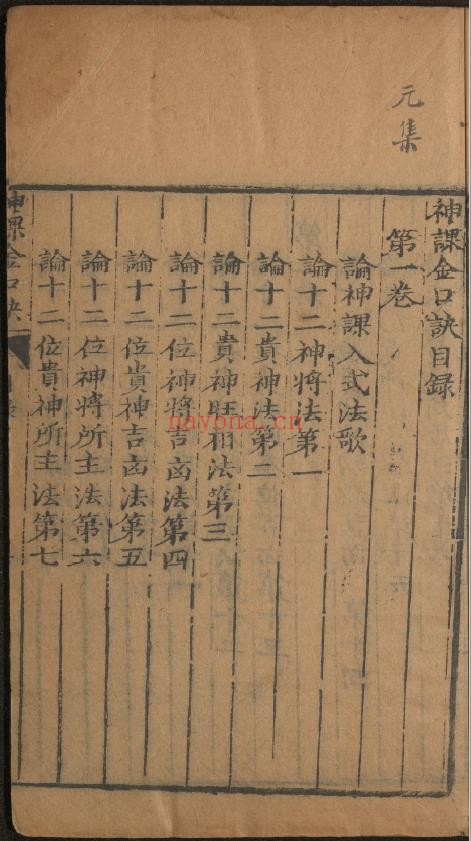 元集
神課金口訣目錄
第一卷
論神課入式法歌
論十二神將法第一
論十二貴神法第二
論十二貴神旺相法第三
論十二位神將吉凶法第四
論十二位貴神吉凶法第五
論十二位神將所主法第六
論十二位貴神所主法第七
神課金口訣
nayona.cn